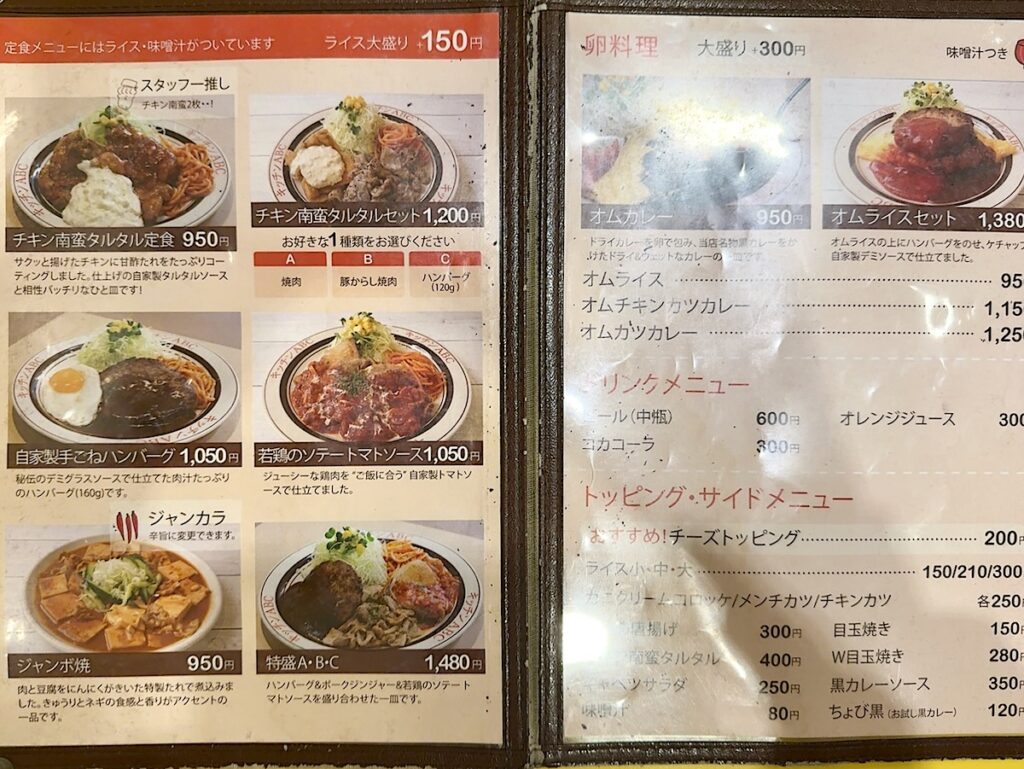 定食メニューにはライス・味噌汁がついています
ライス大盛り +150円
スタッフ一推し
チキン南蛮2枚‥!
キッチンABC
チキン南蛮タルタル定食 950円
サクッと揚げたチキンに甘酢たれをたっぷりコー
ティングしました。仕上げの自家製タルタルソース
と相性バッチリなひと皿です!
キッチンABC
チキン南蛮タルタルセット 1,200円
お好きな1種類をお選びください
A B C
焼肉 豚からし焼肉 ハンバーグ
(120g)
キッチンABC
キッチンABC
自家製手ごねハンバーグ 1,050円
秘伝のデミグラスソースで仕立てた肉汁たっぷり
のハンバーグ(160g)です。
キッチンABC
キッチンABC
若鶏のソテートマトソース 1,050円
ジューシーな鶏肉を“ご飯に合う”自家製トマトソ
ースで仕立てました。
ジャンカラ
辛旨に変更できます。
ジャンボ焼 950円
肉と豆腐をにんにくがきいた特製たれで煮込みま
した。きゅうりとネギの食感と香りがアクセントの
一品です。
キッチンABC
キッチンABC
特盛A・B・C 1,480円
ハンバーグ&ポークジンジャー&若鶏のソテート
マトソースを盛り合わせた一皿です。
卵料理 大盛り+300円
味噌汁つき
オムカレー 950円
ドライカレーを卵で包み、当店名物黒カレーをか
けたドライ&ウェットなカレーの
です。
キッチンABC
オムライスセット 1,380
オムライスの上にハンバーグをのせ、ケチャップ
自家製デミソースで仕立てました。
オムライス 95
オムチキンカツカレー 1,15
オムカツカレー 1,25
リンクメニュー
ビール(中瓶) 600円
オレンジジュース 300
コカコーラ 300円
トッピング・サイドメニュー
おすすめ!チーズトッピング 200円
ライス小・中・大 150/210/300
カニクリームコロッケ/メンチカツ/チキンカツ 各250
唐揚げ 300円
目玉焼き 150円
南蛮タルタル 400円
W目玉焼き 280円
キャベツサラダ 250円
黒カレーソース 350円
味噌汁 80円
ちょび黒(お試し黒カレー) 120円